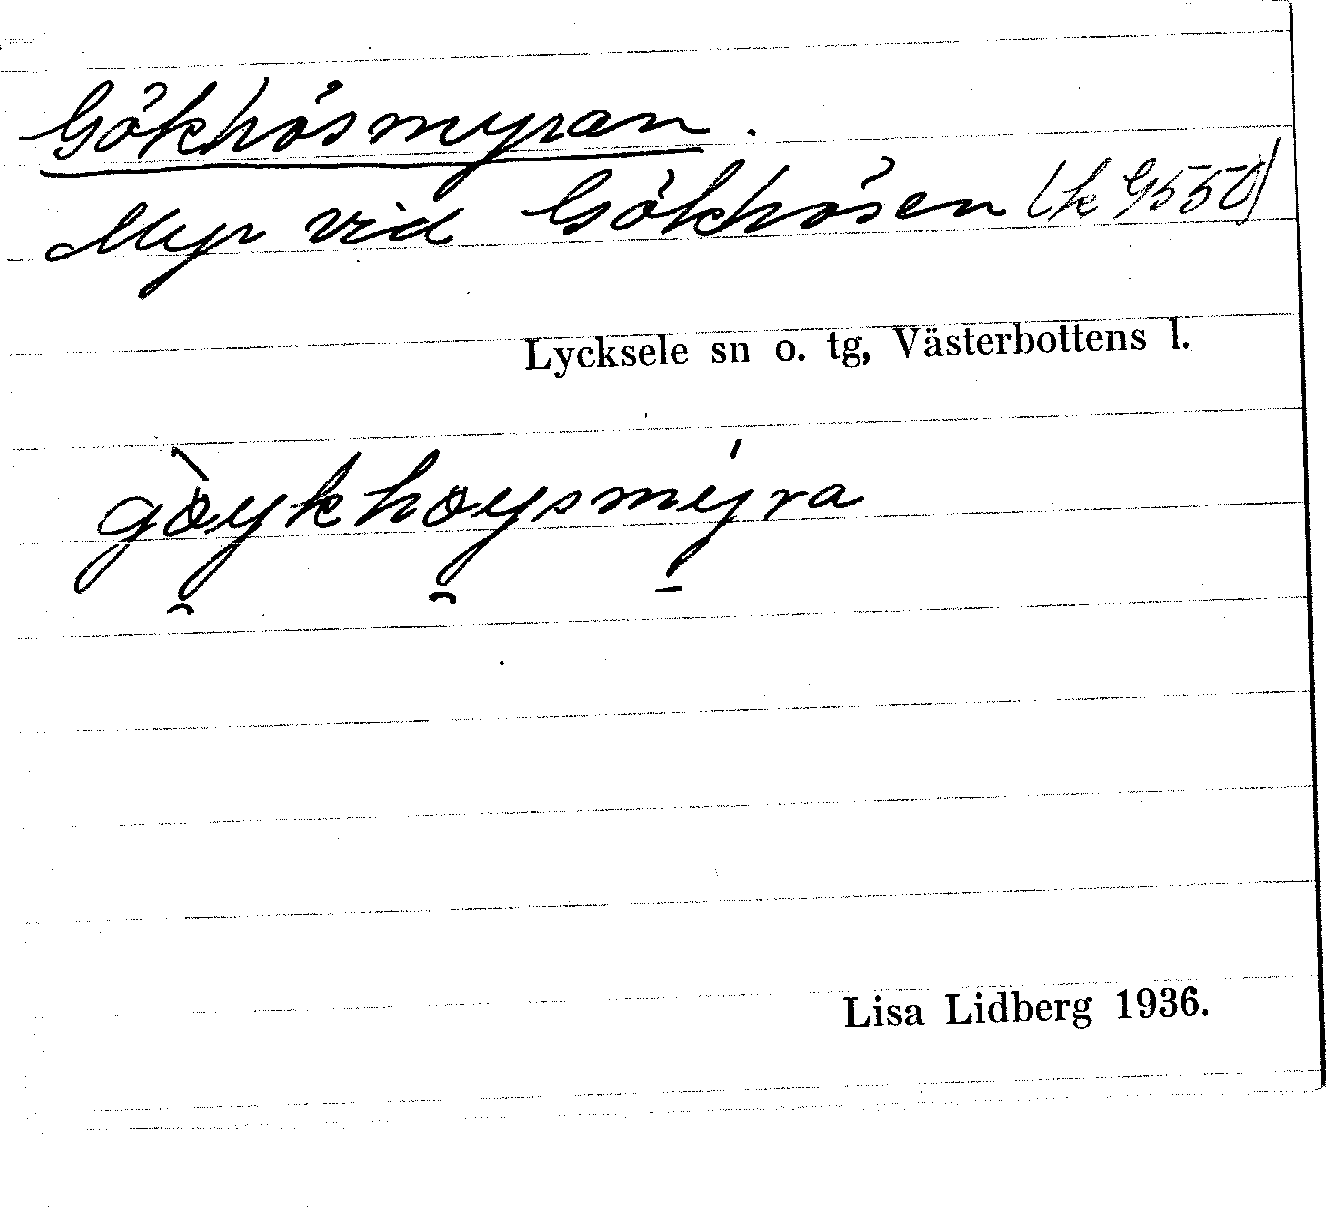 Gökhösmyran.
Myr vid Gökhösen (k 9550)
Lycksele sn o. tg, Västerbottens l.
gòykhoysmýra
Lisa Lidberg 1936.